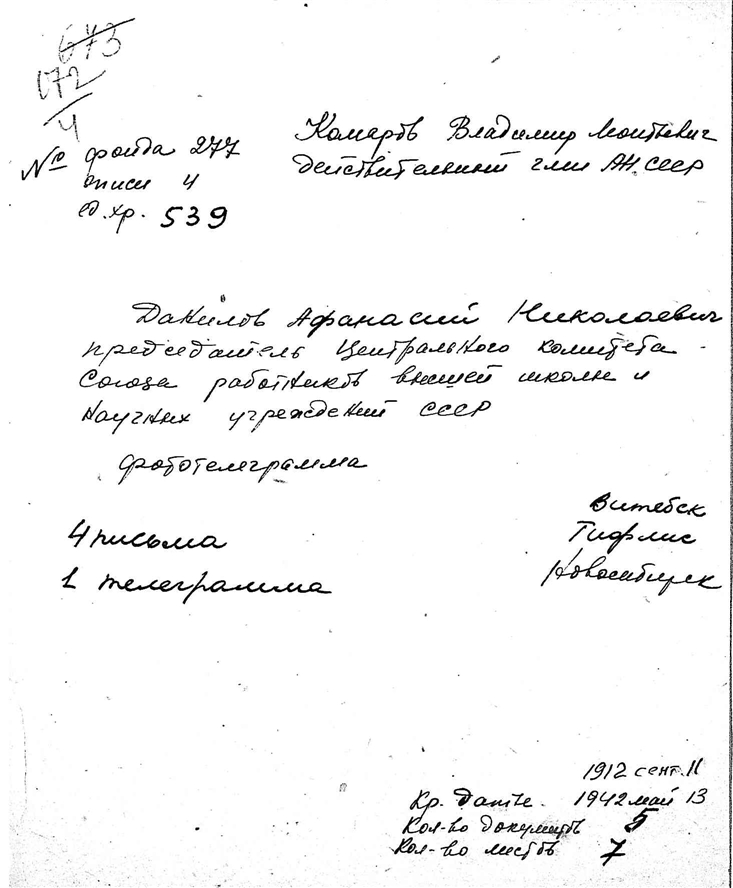 673
172
4
№ фонда 277
описи 4
ед. хр. 539
Комаров Владимир Леонтьевич
действительный член АН СССР
Данилов Афанасий Николаевич
председатель Центрального комитета
Союза работников высшей школы и
научных учреждений СССР
фототелеграмма
4 письма
1 телеграмма
Витебск
Тифлис
Новосибирск
1912 сент. 11
Кр. даты. 1942 май 13
Кол-во документов 5
Кол-во листов 7